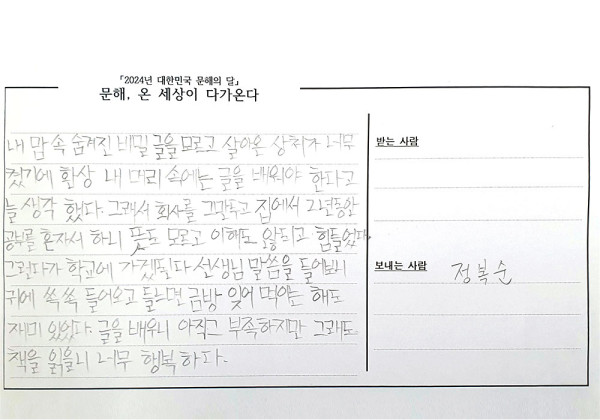 「2024년 대한민국 문해의 달」
문해, 온 세상이 다가온다
내 맘 속 숨겨진 비밀 글을 모르고 살아온 상처가 너무
컸기에 황상 내 머리 속에는 글을 배워야 한다고
늘 생각 했다. 그래서 회사를 그만두고 집에서 2년동안
공부를 혼자서 하니 뜻도 모르고 이해도 않되고 힘들었다.
그러다가 학교에 가 선생님 말씀을 들어보니
귀에 쏙쏙 들어오고 들으면 금방 잊어 먹이는 해도
재미 있었다. 글을 배우니 아직그 부족하지만 그래도
책을 읽을니 너무 행복하다.
받는 사람
보내는 사람 정복순